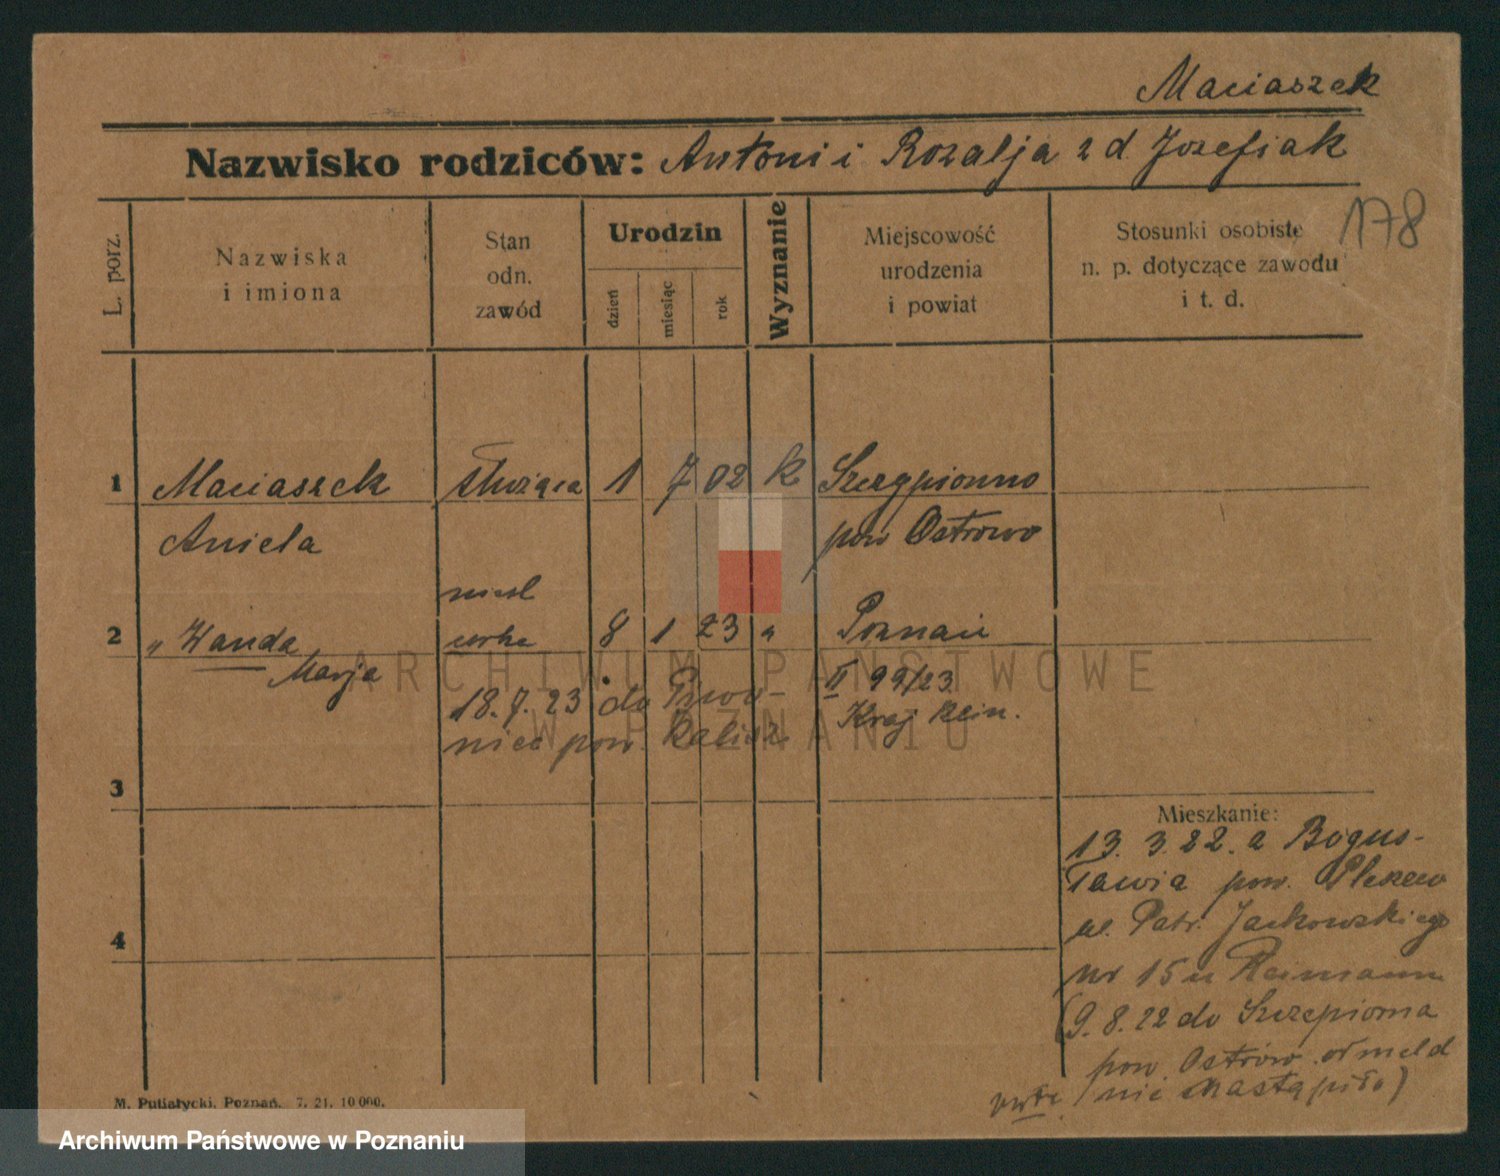 Maciaszek
Nazwisko rodziców: Antoni i Rozalja z d. Jozefiak
178
L. porz.
Nazwiska
i imiona
Stan
odn.
zawód
Urodzin
dzień
miesiąc
rok
Wyznanie
Miejscowość
urodzenia
i powiat
Stosunki osobiste
n. p. dotyczące zawodu
i t. d.
1 Maciaszek służąca 1 7 02 k Szczypiorno
Aniela pow Ostrowo
nieśl
2 " Wanda córka 8 1 23 " Poznań
Marja
18.7.23 do
nice pow. Kalisz
II 99/23
Kraj Klin.
3
Mieszkanie:
13. 3. 22. a Bogus-
ławia pow. Pleszew
ul. Patr. Jackowskiego
nr 15 u Reimann
(9. 8. 22 do Szczepiorna
pow. Ostrów. odmeld
nie nastąpiło)
4
M. Putiatycki, Poznań. 7. 21. 10 000.
ARCHIWUM PAŃSTWOWE
W POZNANIU
Archiwum Państwowe w Poznaniu